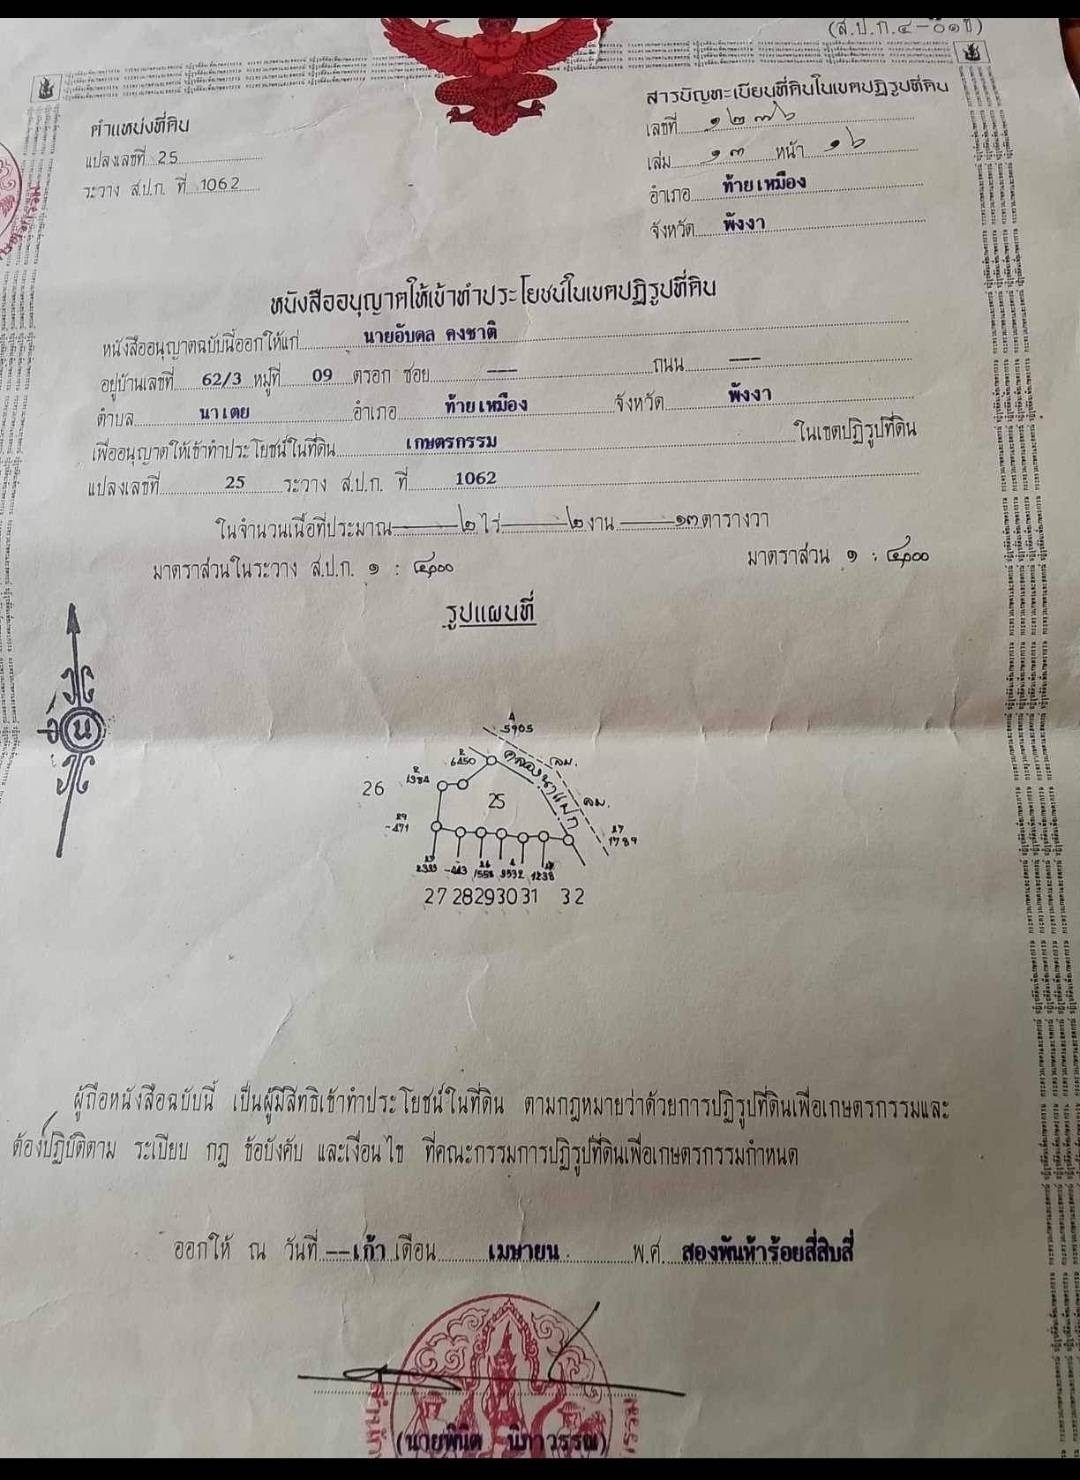 (ส.ป.ก.๔-๐๑ข)
สารบัญทะเบียนที่ดินในเขตปฏิรูปที่ดิน
ตำแหน่งที่ดิน
เลขที่ ๑๒๓๖
แปลงเลขที่ 25
เล่ม ๑๓ หน้า ๑๖
ระวาง ส.ป.ก. ที่ 1062
อำเภอ ท้ายเหมือง
จังหวัด พังงา
หนังสืออนุญาตให้เข้าทำประโยชน์ในเขตปฏิรูปที่ดิน
หนังสืออนุญาตฉบับนี้ออกให้แก่ นายอับดล คงชาติ
อยู่บ้านเลขที่ 62/3 หมู่ที่ 09 ตรอก ซอย --- ถนน ---
ตำบล นาเตย อำเภอ ท้ายเหมือง จังหวัด พังงา
เพื่ออนุญาตให้เข้าทำประโยชน์ในที่ดิน เกษตรกรรม ในเขตปฏิรูปที่ดิน
แปลงเลขที่ 25 ระวาง ส.ป.ก. ที่ 1062
ในจำนวนเนื้อที่ประมาณ ๒ ไร่ ๒ งาน ๑๓ ตารางวา
มาตราส่วนในระวาง ส.ป.ก. ๑ : ๔๐๐๐ มาตราส่วน ๑ : ๔๐๐๐
รูปแผนที่
น
5905
6450
คลองนาแฝก
คม.
1384
26
25
คม.
29
-471
27
1789
-443 1558 9532 1238
27 28 29 30 31 32
ผู้ถือหนังสือฉบับนี้ เป็นผู้มีสิทธิเข้าทำประโยชน์ในที่ดิน ตามกฎหมายว่าด้วยการปฏิรูปที่ดินเพื่อเกษตรกรรมและ
ต้องปฏิบัติตาม ระเบียบ กฎ ข้อบังคับ และเงื่อนไข ที่คณะกรรมการปฏิรูปที่ดินเพื่อเกษตรกรรมกำหนด
ออกให้ ณ วันที่ --เก้า เดือน เมษายน พ.ศ. สองพันห้าร้อยสี่สิบสี่
(นายพินิต นิภาวรรณ)